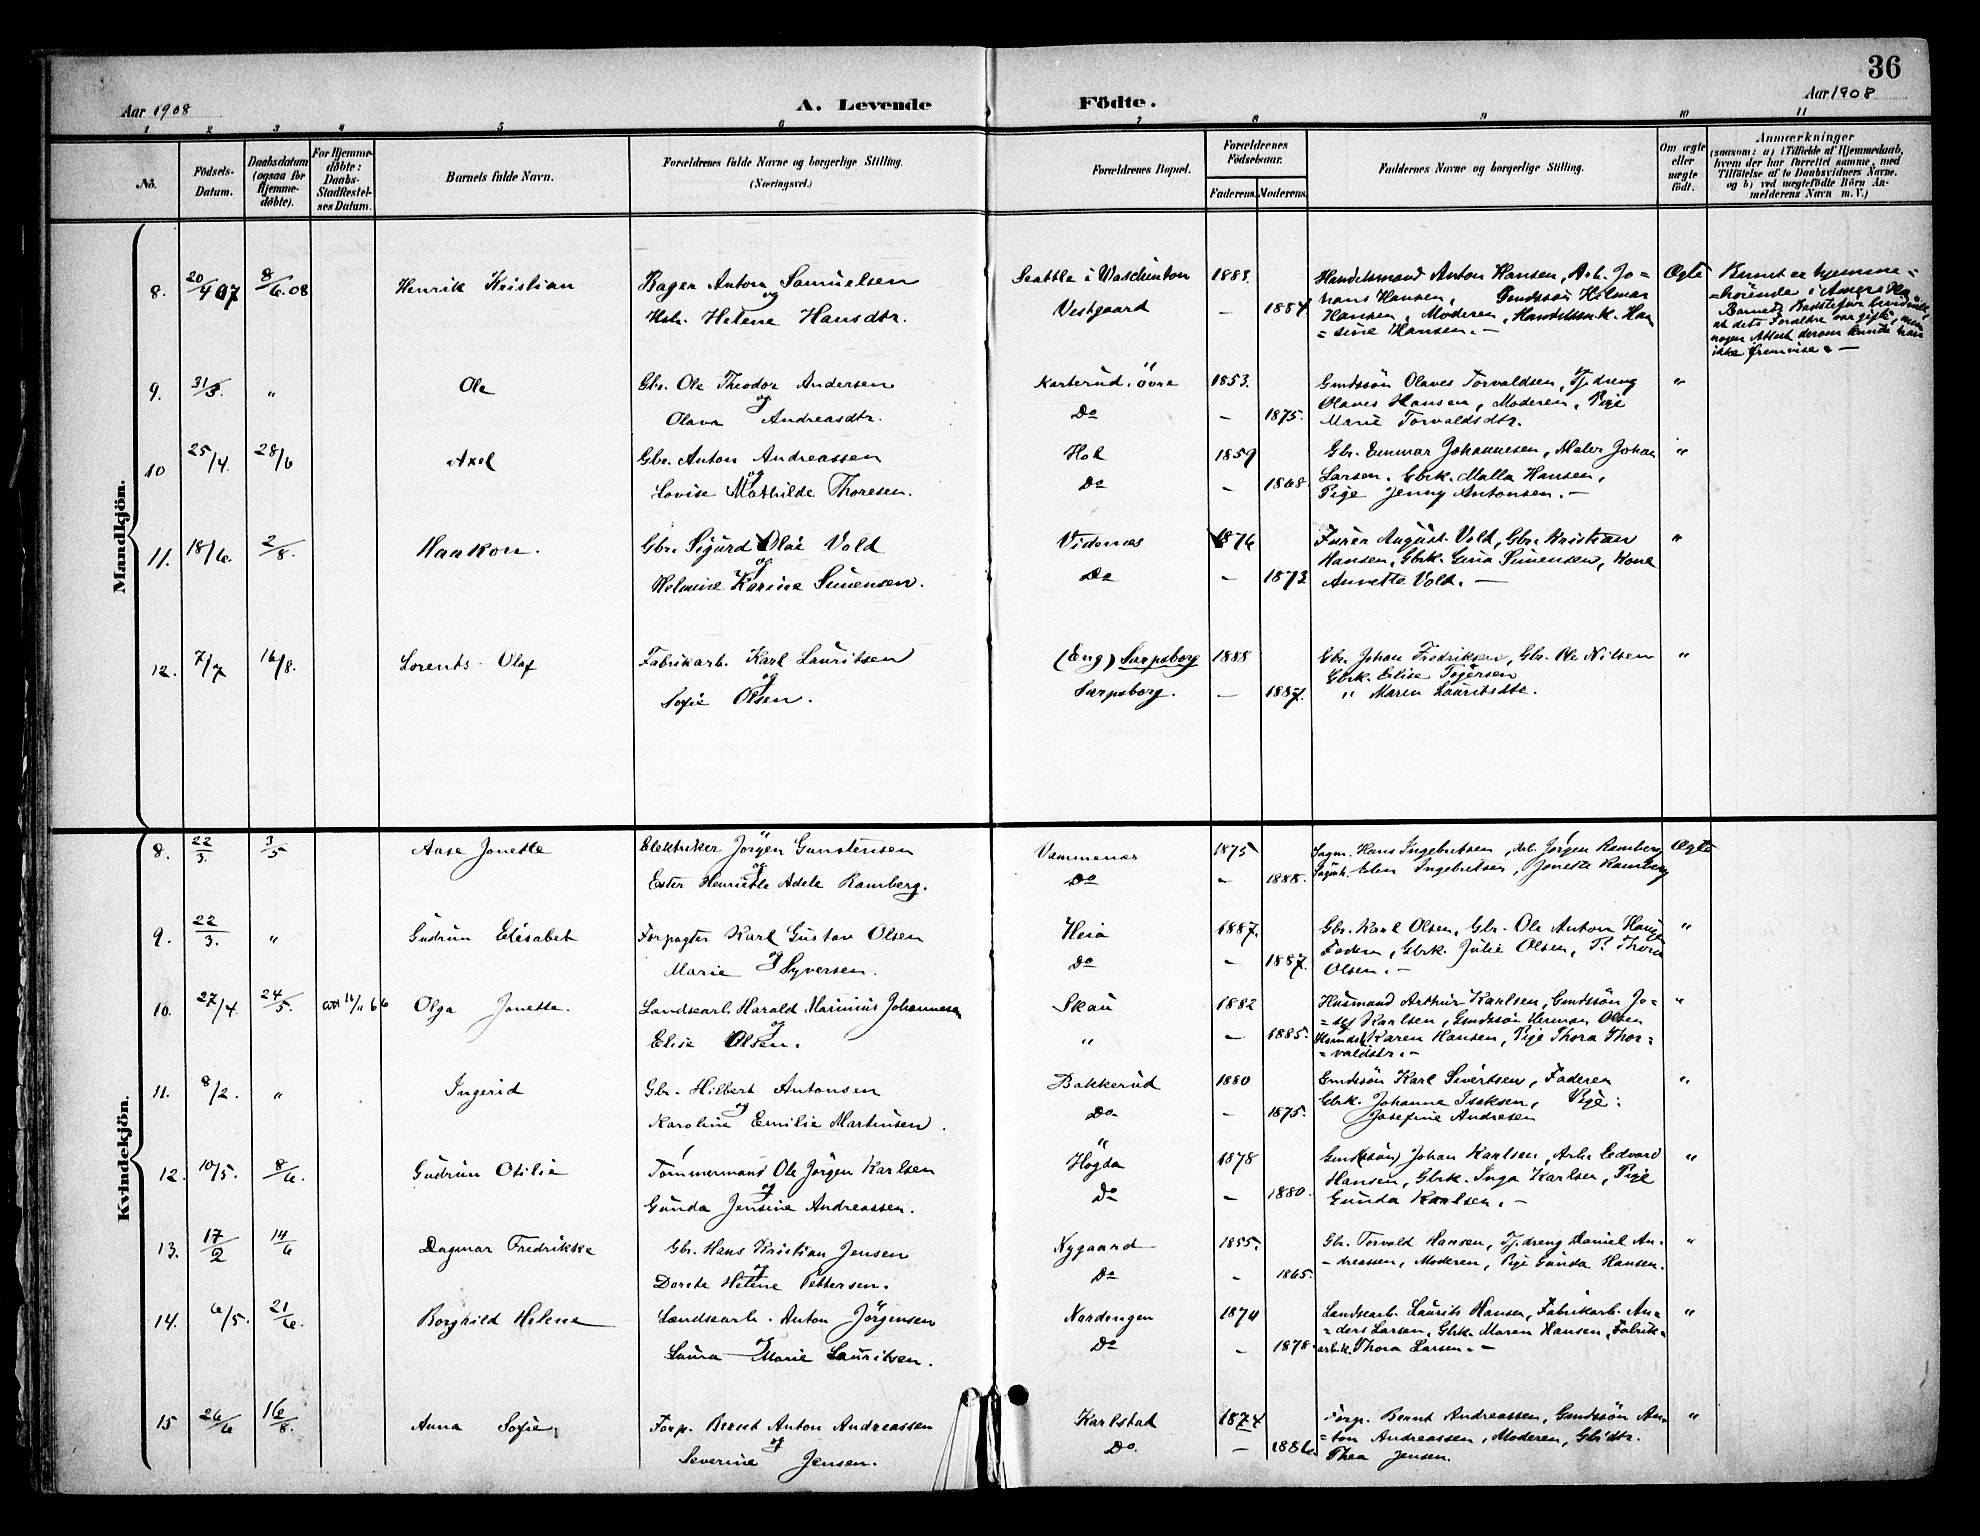 36
Aar 1908
A. Levende
Födte.
Aar 1908
1 2 3 4 5 6 7 8 9 10 11
No.
Födsels-Datum.
Daabsdatum (ogsaa for Hjemme-döbte).
For Hjemme-döbte: Daabs-Stadfæstel-ses Datum.
Barnets fulde Navn.
Forældrenes fulde Navne og borgerlige Stilling. (Næringsvei.)
Forældrenes Bopæl.
Forældrenes Födselsaar.
Faderens. Moderens.
Faddernes Navne og borgerlige Stilling.
Om ægte eller uægte födt.
Anmærkninger
(saasom: a) i Tilfælde af Hjemmedaab, hvem der har forrettet samme, med Tilföielse af to Daabsvidners Navne. og b) ved uægtefödte Börn An-melderens Navn m. V.)
Mandkjön.
8. 20/9 07 8/6.08 Henrik Kristian Bager Anton Samuelsen Seattle i Waschinton 1883. Handelsmand Anton Hansen, Arb. Jo= Ægte Barnet er hjemme=
og
Hstr. Helene Hansdtr. Vestgaard – 1884 hans Hansen, Gmdssön Hilmar =hörende i Amerika
Hansen, Moderen, Handelsm.k. Han
=sine Hansen. –
at dets Forældre var gift, men
nogen Attest derom kunde han
ikke fremvise. –
9. 31/3. " Ole Gbr. Ole Theodor Andersen Karterud, övre 1853. Gmdssön Olaves Torvaldsen, Tj.dreng "
og
Olava Andreasdtr. Do – 1875. Olaves Hansen, Moderen, Pige
Marie Torvaldsdtr.
10 25/4. 28/6 Axel Gbr. Anton Andreassen Hol 1859 Gbr. Gunnar Johannesen, Maler Johan "
og
Lovise Mathilde Thoresen. Do – 1868 Larsen. Gbrk. Malla Hansen,
Pige Jenny Antonsen. –
11. 18/6. 2/8. Haakon. Gbr. Sigurd Olai Vold Vidnæs 1876 Furer August Vold, Gbr. Kristian "
og
Helmine Karine Simensen. Do – 1873 Hansen, Gbrk. Gina Simensen, Kone
Annette Vold. –
12. 7/7 16/8. Lorents Olaf Fabrikarb. Karl Lauritsen (Eng) Sarpsborg 1888 Gbr. Johan Fredriksen, Gbr. Ole Nilsen "
og
Sofie Olsen. Sarpsborg. – 1887. Gbrk. Elise Togersen
" Maren Lauritsdtr.
Kvindekjön.
8. 22/3. 3/5 Aase Jonette Elektriker Jörgen Gunstensen Vammenæs 1875 Sagm. Hans Ingebretsen, Arb. Jörgen Ramberg Ægte
og
Ester Henriette Adele Ramberg. Do – 1888. Elen Ingebretsen, Jonette Ramberg
9. 22/3. " Gudrun Elisabet Forpagter Karl Gustav Olsen Heia 1887. Gbr. Karl Olsen, Gbr. Ole Anton Haugen "
og
Marie Syversen. Do – 1887. Faderen, Gbrk. Julie Olsen, P. Thora
Olsen. –
10. 27/4. 24/5. Olga Jonette. Landsearb. Harald Marinius Johannesen Skau 1882 Husmand Arthur Karlsen, Gmdssön Jo= "
og
Elise Olsen. " – 1885. =sef Karlsen, Gmdssön Herman Olsen
Karen Hansen, Pige Thora Thor=
=valdstr. –
11. 8/2. " Ingerid Gbr. Hilbert Antonsen Bakkerud 1880 Gmdssön Karl Sivertsen, Faderen "
og
Karoline Emilie Martinsen. Do – 1875. Gbrk. Johanne Isaksen, Pige:
Josefine Andresen
12. 10/5. 8/6. Gudrun Otilie Tömmermand Ole Jörgen Karlsen Högda 1878 Gmd(ssön) Johan Karlsen, Arb. Edvard "
og
Gunda Jensine Andreassen. Do – 1880. Hansen, Gbrk. Inga Karlsen, Pige
Gunda Karlsen. –
13. 17/2 14/6 Dagmar Fredrikke Gbr. Hans Kristian Jensen Nygaard 1855. Gbr. Torvald Hansen, Tj.dreng Daniel An- "
og
Dorete Helene Pettersen. Do – 1865. -dreassen, Moderen, Pige Gunda Hansen.
14. 6/5. 21/6. Borghild Helene Landsearb. Anton Jörgensen Nordengen 1870 Landsearb. Laurits Hansen, Fabrikarb. An= "
og
Laura Marie Lauritsen. Do – 1878. =ders Larsen, Gbrk. Maren Hansen, Fabrik=
arb.k. Thora Larsen. –
15 26/6 16/8. Anna Sofie Forp. Bernt Anton Andreassen Karlstad 1874 Forp. Bernt Andreassen, Gmdssön An= "
og
Severine Jensen. Do. – 1886. =ton Andreassen, Moderen, Gb.dtr.
Thea Jensen.